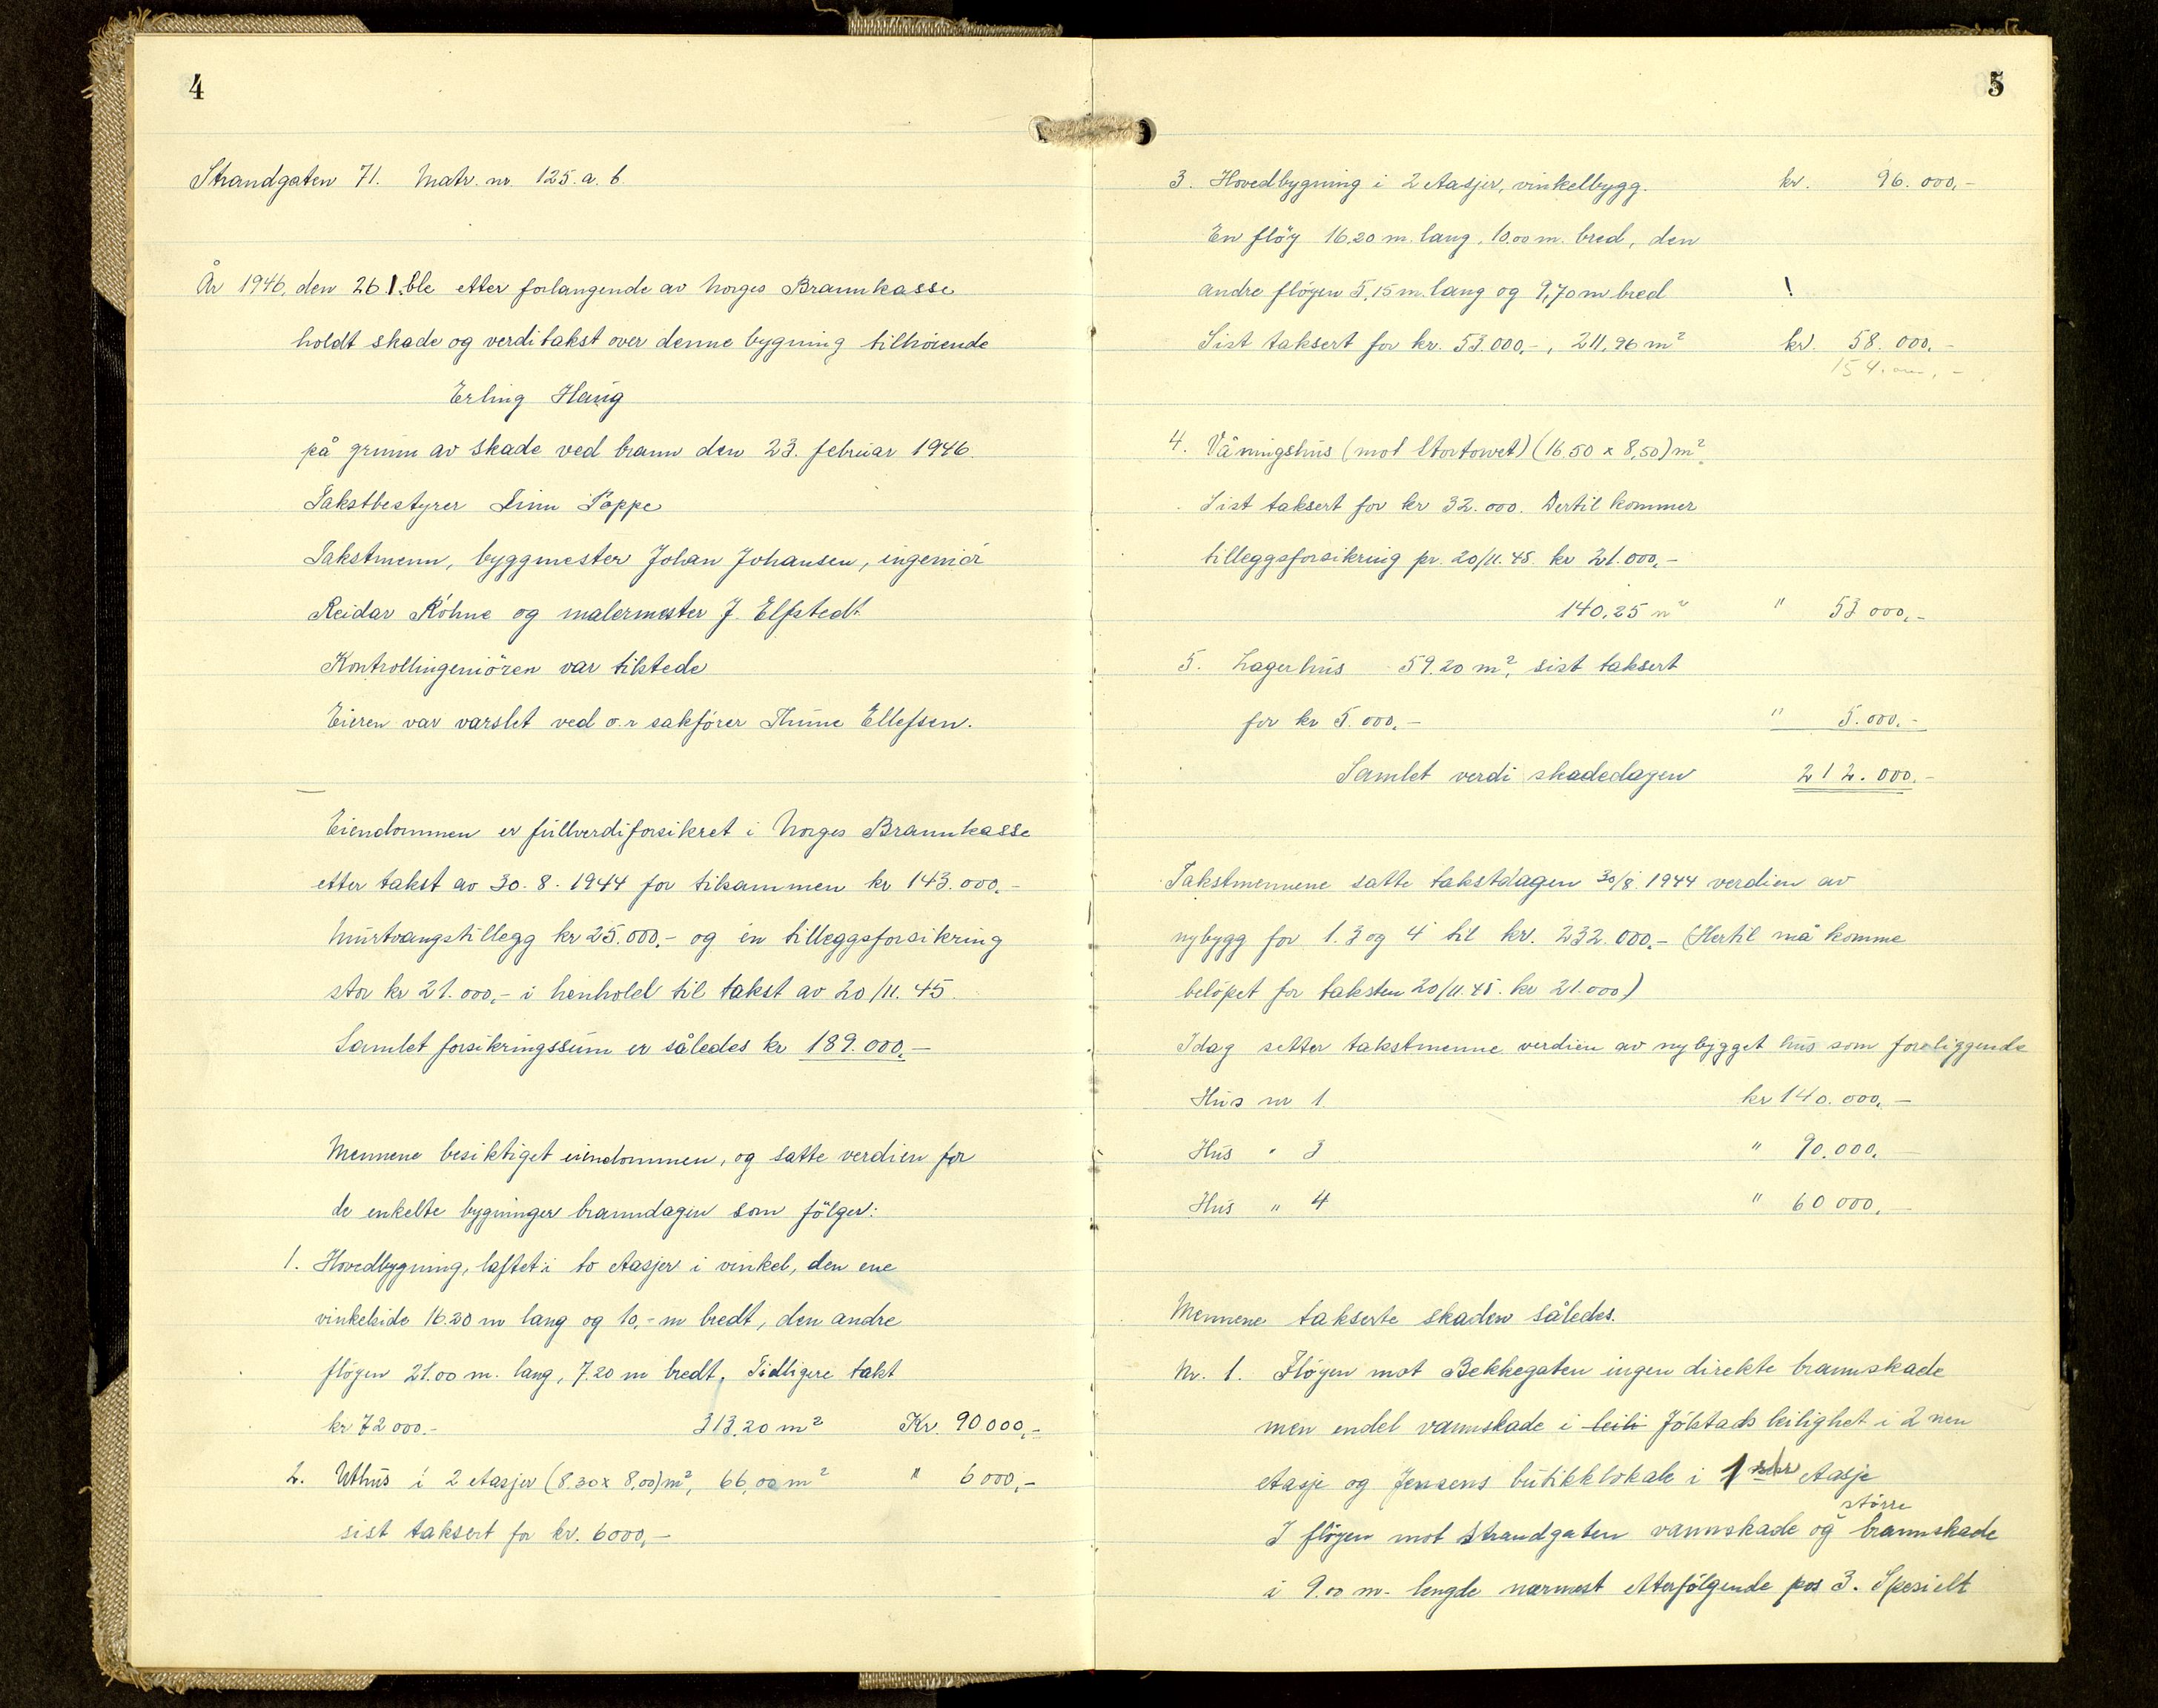 4
Strandgaten 71. Matr. nr. 125. a. b.
År 1946, den 26 ble etter forlangende av Norges Brannkasse
holdt skade og verditakst over denne bygning tilhörende
Erling Haug
på grunn av skade ved brann den 23. februar 1946.
Takstbestyrer Finn Poppe
Takstmenn, byggmester Johan Johansen, ingeniör
Reidar Röhne og malermester J. Elfstedt
Kontrollingeniören var tilstede
Eieren var varslet ved o.r sakförer Thune Ellefsen.
Eiendommen er fullverdiforsikret i Norges Brannkasse
etter takst av 30.8.1944 for tilsammen kr 143.000,-
Murtvangstillegg kr 25.000,- og en tilleggsforsikring
stor kr 21.000,- i henhold til takst av 20/11.45.
Samlet forsikringssum er således kr 189.000,-
Mennene besiktiget eiendommen, og satte verdien for
de enkelte bygninger branndagen som fölger:
1. Hovedbygning, laftet i to etasjer i vinkel, den ene
vinkelside 16.20 m lang og 10,- m bredt, den andre
flöyen 21.00 m. lang, 7.20 m bredt, Tidligere takt
kr 72 000.- 313,20 m² Kr. 90.000,-
2. Uthus i 2 etasjer (8.30 x 8,00)m², 66,00 m² " 6000,-
sist taksert for kr. 6000,-
5
3. Hovedbygning i 2 etasjer, vinkelbygg. kr. 96.000,-
En flöy 16.20 m. lang, 10.00 m. bred, den
andre flöyen 5,15 m. lang og 9,70 m bred !
Sist taksert for kr. 53.000,-, 211,96 m² kr. 58.000,-
154.000,-
4. Våningshus (mot Stortorvet) (16.50 x 8,50) m²
Sist taksert for kr 32.000. Dertil kommer
tilleggsforsikring pr. 20/11.45. kr 21.000,-
140,25 m² " 53 000,-
5. Lagerhus 59.20 m², sist taksert
for kr 5.000,- " 5.000,-
Samlet verdi skadedagen 212.000,-
Takstmennene satte takstdagen 30/8.1944 verdien av
nybygg for 1. 3 og 4 til kr. 232.000,- (Hertil må komme
belöpet for taksten 20/11.45. kr 21.000)
Idag setter takstmenne verdien av nybygget hus som foreliggende
Hus nr 1. kr 140.000,-
Hus " 3 " 90.000,
Hus " 4 " 60 000,-
Mennene takserte skaden således.
Nr. 1. Flöyen mot Bekkegaten ingen direkte brannskade
men endel vannskade i leili Jölstads leilighet i 2 nen
etasje og Jensens butikklokale i 1 ste etasje
större
I flöyen mot Strandgaten vannskade og brannskade
i 9.00 m. lengde nærmest etterfölgende pos 3. Spesielt